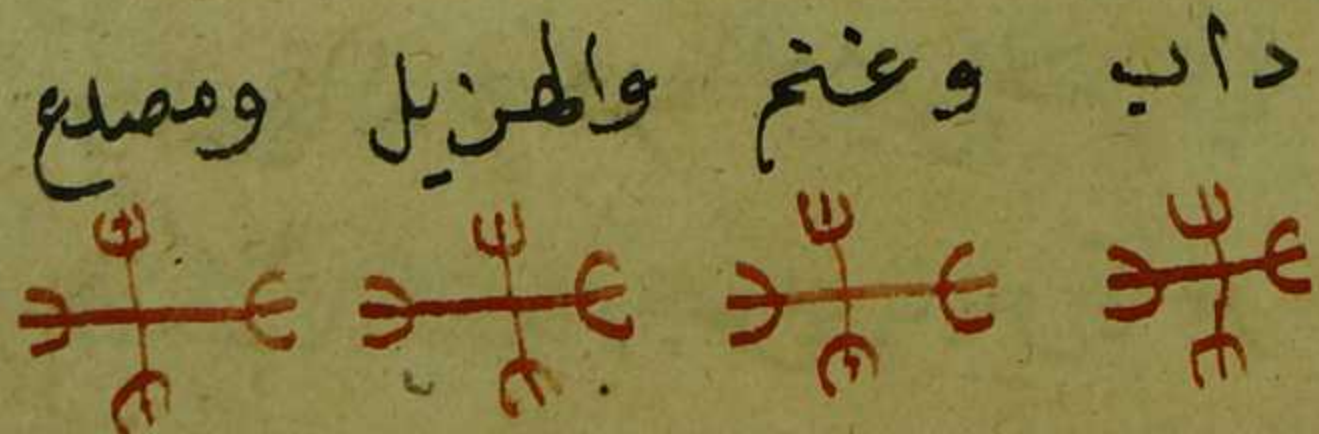 داب وغنم والهزيل ومصدع